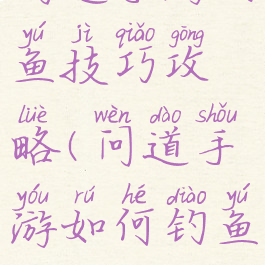 yú jì qiǎo gōng
鱼技巧攻
lüè wèn dào shǒu
略(问道手
yóu rú hé diào yú
游如何钓鱼